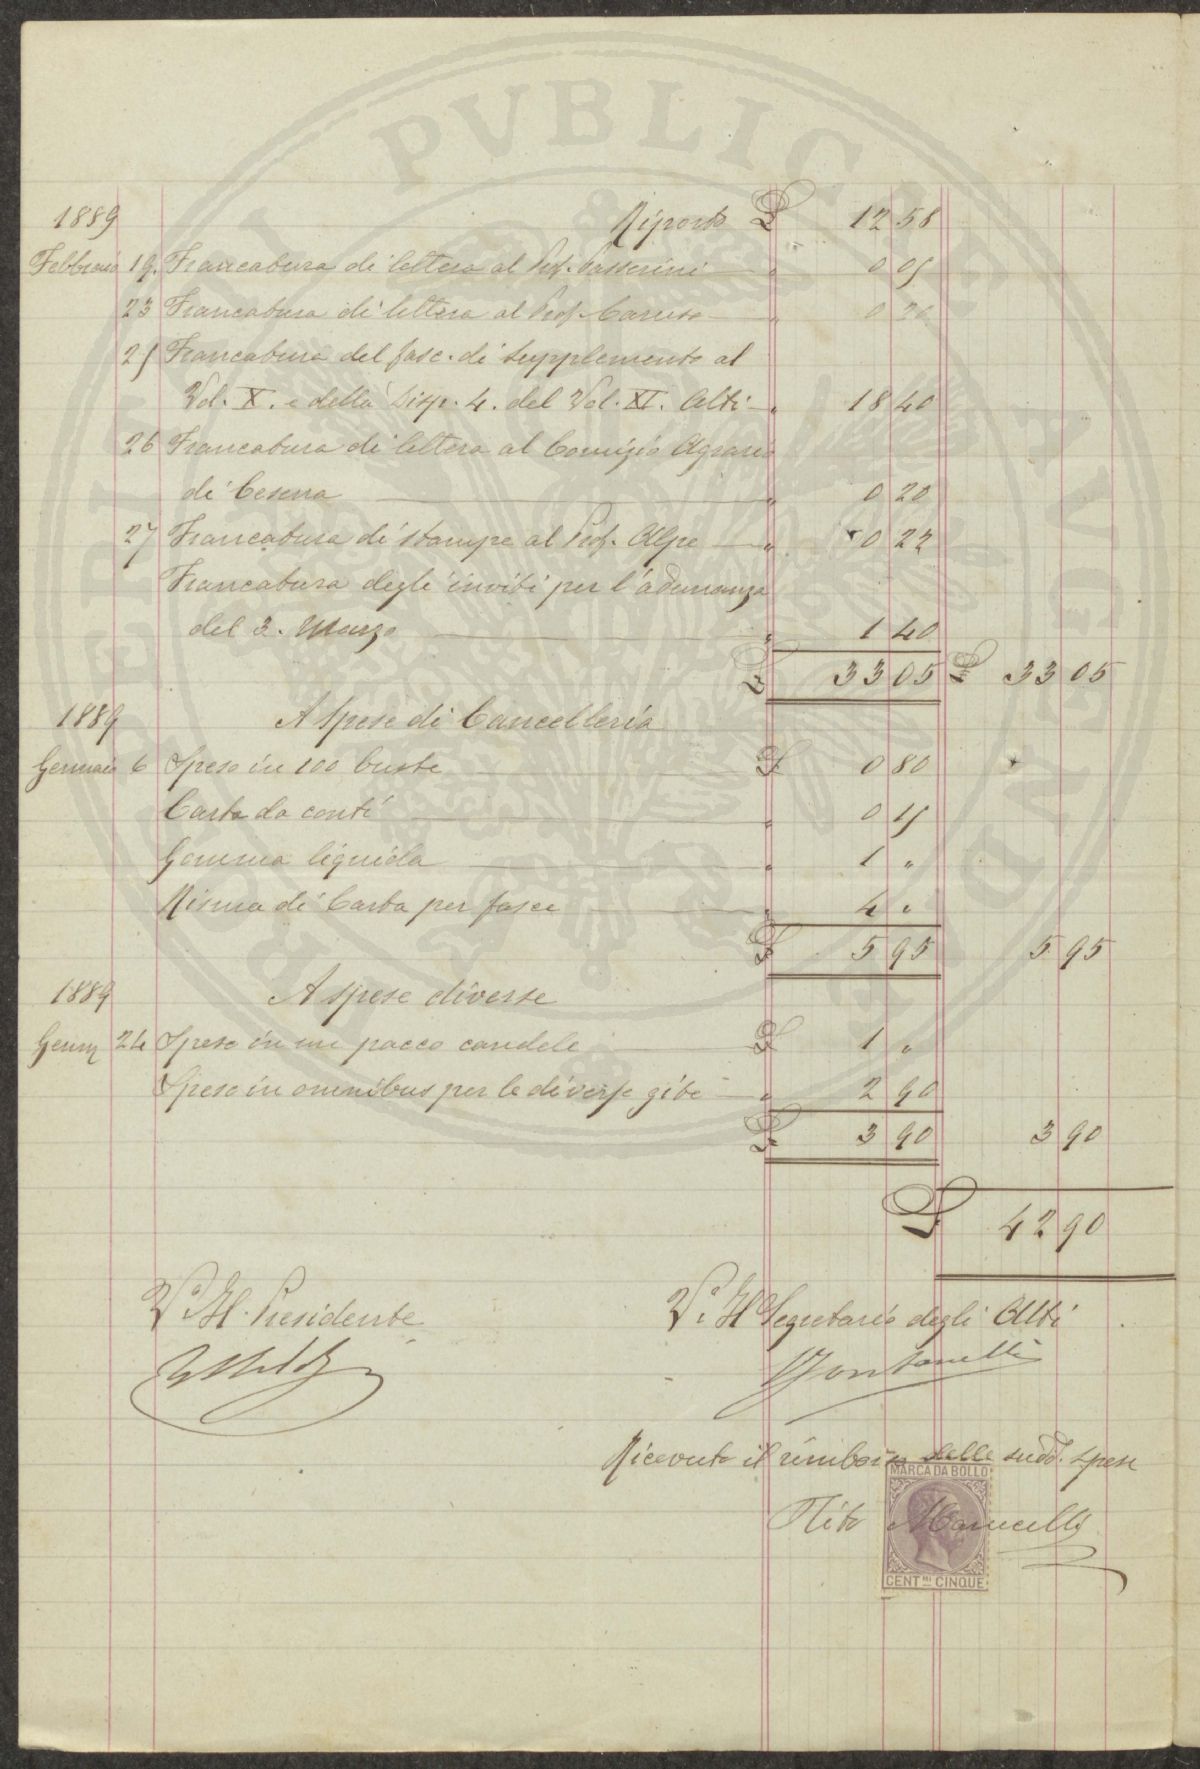 1889 Riporto £ 12 58
Febbraio 19. Francatura di lettera al Prof. Passerini " 0 05
23 Francatura di lettera al Prof. Caruso " 0 20
25 Francatura del fasc. di supplemento al
Vol. X. e della Disp. 4. del Vol. XI. Atti " 18 40
26 Francatura di lettera al Comizio Agrario
di Cesena " 0 20
27 Francatura di stampe al Prof. Alpe " 0 22
Francatura degli inviti per l'adunanza
del 3. Marzo " 1 40
£ 33 05 £ 33 05
1889 A spese di Cancelleria
Gennaio 6 Speso in 100 buste £ 0 80
Carta da conti " 0 15
Gomma liquida " 1 "
Risma di Carta per fasce " 4 "
£ 5 95 5 95
1889 A spese diverse
Genn 24 Speso in un pacco candele £ 1 "
Speso in omnibus per le diverse gite " 2 90
£ 3 90 3 90
£ 42 90
V.° Il Presidente V.° Il Segretario degli Atti
Ricevuto il rimborso delle sudd. spese
MARCA DA BOLLO
Tito Marucelli
CENT.MI CINQUE